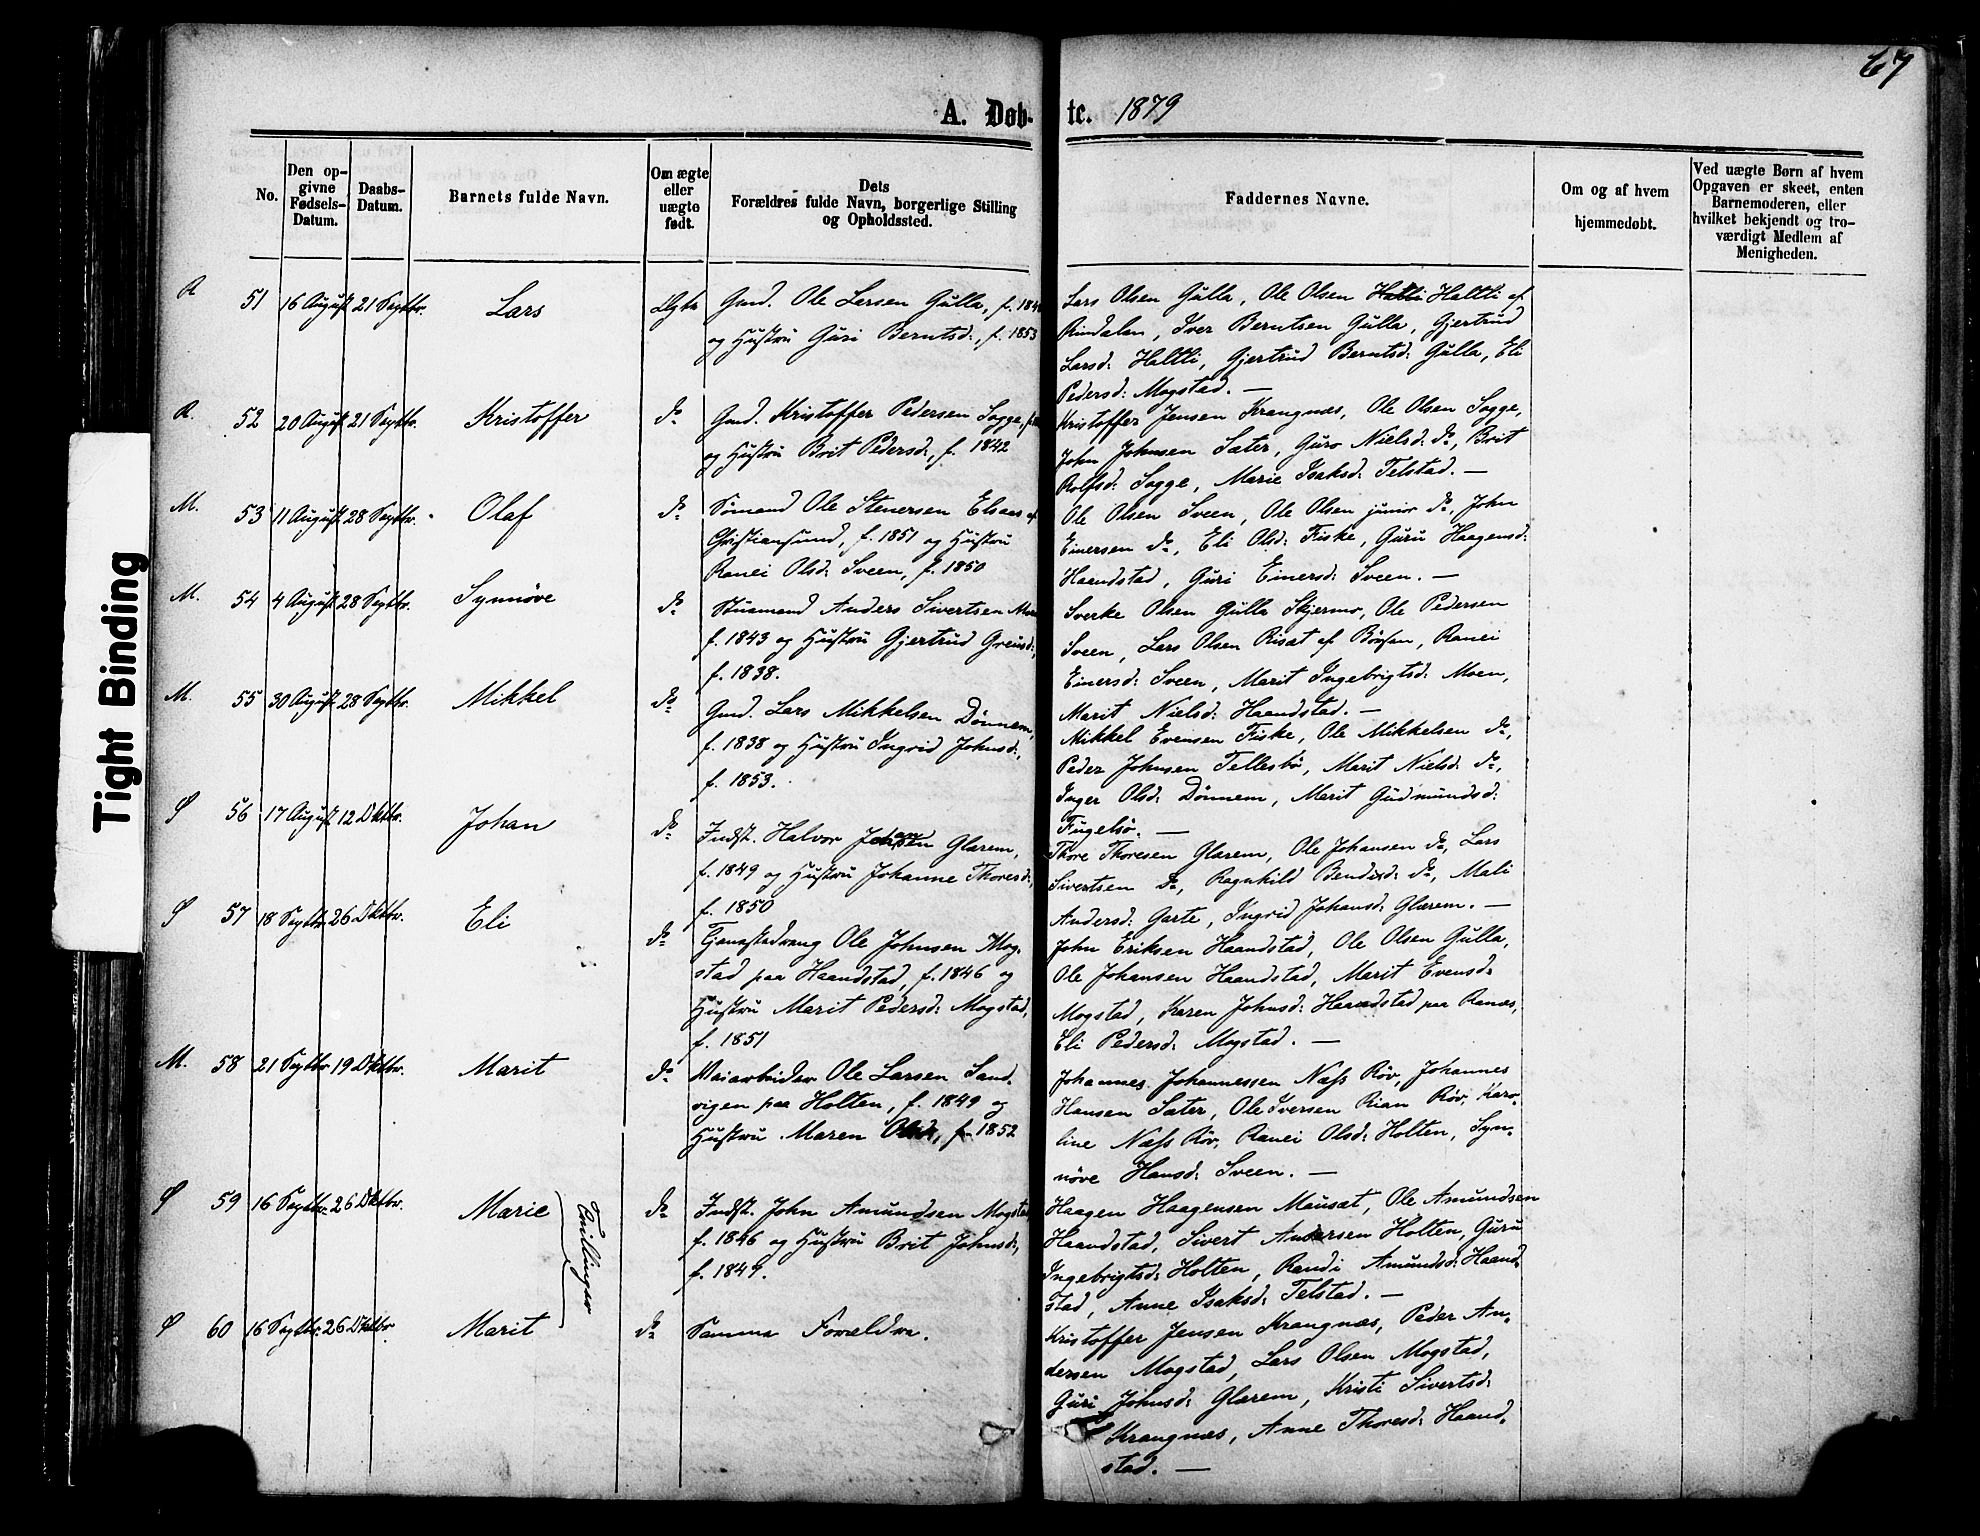 67
A. Døb- te. 1879
No.
Den op-
givne
Fødsels-
Datum.
Daabs-
Datum.
Barnets fulde Navn.
Om ægte
eller
uægte
født.
Dets
Forældres fulde Navn, borgerlige Stilling
og Opholdssted.
Faddernes Navne.
Om og af hvem
hjemmedøbt.
Ved uægte Børn af hvem
Opgaven er skeet, enten
Barnemoderen, eller
hvilket bekjendt og tro-
værdigt Medlem af
Menigheden.
R 51 16 August 21 Septbr. Lars Ægte
Gmd. Ole Larsen Gulla, f.
og Hustru Guri Berntsd:, f. 1853
Lars Olsen Gulla, Ole Olsen Haltli af
Rindalen, Iver Berntsen Gulla, Gjertrud
Larsd: Haltli, Gjertrud Berntsd: Gulla, Eli
Pedersd: Mogstad. —
R. 52 20 August 21 Septbr. Kristoffer do
Gmd. Kristoffer Pedersen Sogge,
og Hustru Brit Pedersd:, f. 1842
Kristoffer Jensen Krangnæs, Ole Olsen Sogge,
John Johnsen Sæter, Guro Nielsd: do, Brit
Rolfsd: Sogge, Marie Isaksd: Telstad. —
M. 53 11 August 28 Septbr. Olaf do
Sömand Ole Stenersen Elsaas af
Christiansund, f. 1851 og Hustru
Ranei Olsd: Sveen, f. 1850
Ole Olsen Sveen, Ole Olsen junior do, John
Einersen do, Eli Olsd: Fiske, Guru Haagensd:
Haandstad, Guri Einersd: Sveen. —
M. 54 4 August 28 Septbr. Synnöve do
Husmand Anders Sivertsen
f. 1843 og Hustru Gjertrud Greiusd:,
f. 1838.
Sverke Olsen Gulla Skjermo, Ole Pedersen
Sveen, Lars Olsen Risat af Börsen, Ranei
Einersd: Sveen, Marit Ingebrigtsd: Moen,
Marit Nielsd: Haandstad. —
M. 55 30 August 28 Septbr. Mikkel do
Gmd. Lars Mikkelsen Dönnem,
f. 1838 og Hustru Ingrid Johnsd:,
f. 1853.
Mikkel Evensen Fiske, Ole Mikkelsen do,
Peder Johnsen Tellesbö, Marit Nielsd: do,
Inger Olsd: Dönnem, Marit Gudmundsd:
Fugelsö. —
Ø 56 17 August 12 Oktbr. Johan do
Indst. Halvor Johansen Glærem,
f. 1849 og Hustru Johanne Thoresd:,
f. 1850
Thore Thoresen Glærem, Ole Johansen do, Lars
Sivertsen do, Ragnhild Bendixd: do, Mali
Andersd: Garte, Ingrid Johansd: Glærem. —
Ø 57 18 Septbr. 26 Oktbr. Eli do
Ole Johnsen Mog-
stad paa Haandstad, f. 1846 og
Hustru Marit Pedersd: Mogstad,
f. 1851
John Eriksen Haandstad, Ole Olsen Gulla,
Ole Johansen Haandstad, Marit Evensd:
Mogstad, Karen Johnsd: Haandstad paa Ranæs,
Eli Pedersd: Mogstad. —
M. 58 21 Septbr. 19 Oktbr. Marit do
Veiarbeider Ole Larsen Sand-
vigen paa Holten, f. 1849 og
Hustru Maren Olsd:, f. 1852
Johannes Johannessen Næss Röv, Johannes
Hansen Sæter, Ole Iversen Rian Röv, Karo-
line Næss Röv, Ranei Olsd: Holten, Syn-
növe Hansd: Sveen. —
Ø 59 16 Septbr. 26 Oktbr. Marie do
Tvillinger
Indst. John Amundsen Mogstad
f. 1846 og Hustru Brit Johnsd:,
f. 1849.
Haagen Haagensen Mausæt, Ole Amundsen
Haandstad, Sivert Andersen Holten, Guru
Ingebrigtsd: Holten, Randi Amundsd: Haand-
stad, Anne Isaksd: Telstad. —
Ø 60 16 Septbr. 26 Oktbr. Marit do
Samme Forældre.
Kristoffer Jensen Krangnæs, Peder An-
dersen Mogstad, Lars Olsen Mogstad,
Guri Johnsd: Glærem, Kristi Sivertsd:
Krangnæs, Anne Thoresd: Haand-
stad. —
Tight Binding